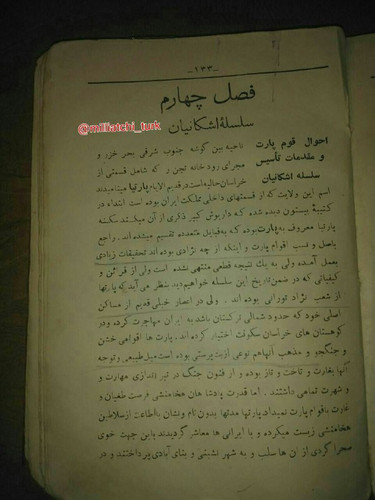 -۱۳۳-
فصل چهارم
@milliatchi_turk
سلسله اشکانیان
احوال قوم پارت ناحیه بین گوشه جنوب شرقی بحر خزر و
و مقدمات تأسیس مجرای رود خانه تجن ر که شامل قسمتی از
سلسله اشکانیان خراسان حالیه است در قدیم الایام پارتیا مینامیدند
اسم این ولایت که از قسمتهای داخلی مملکت ایران بوده است ابتداء در
کتیبهٔ بیستون دیده شده که داریوش کبیر ذکری از آن میکند سکنه
پارتیا معروف به پارت بوده که بقبایل متعدده تقسیم میشده اند. راجع
باصل و نسب اقوام پارت و اینکه از چه نژادی بوده اند تحقیقات زیادی
بعمل آمده ولی به یك نتیجه قطعی منتهی نشده است ولی از قرائن و
کیفیاتی که در ضمن تاریخ این سلسله خواهیم دید بنظر می آید که پارتها
از شعب نژاد تورانی بوده اند. ولی در اعصار خیلی قدیم از مساکن
اصلی خود که حدود شمالی ترکستان باشد به ایران مهاجرت کرده ودر
کوهستان های خراسان سکونت اختیار کرده اند. پارت ها اقوامی خشن
و جنگجو و مذهب آنها هم نوعی از بت پرستی بوده است میل طبیعی و توجه
آنها بغارت و تاخت و تاز بوده و از فنون جنگ در تیر اندازی مهارت و
شهرت تمامی داشتند. اما قدرت پادشا هان هخامنشی فرصت طغیان و
غارت باقوام پارت نمیداد پارتها مدتها بدون نام و نشان باطاعت از سلاطین
هخامنشی زیست میکرده و با ایرانی ها معاشر گردیدند باین جهت خوی
صحرا گردی از ان ها سلب و به شهر نشینی و بنای آبادی پرداختند و در